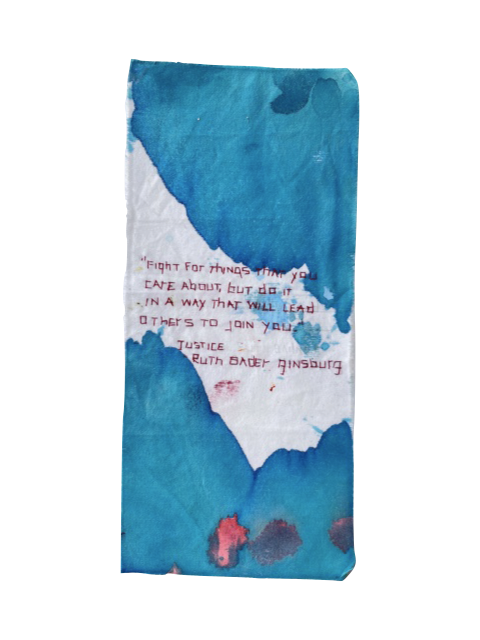 "Fight for things that you
care about, but do it
in a way that will lead
others to join you."
Justice
Ruth Bader Ginsburg